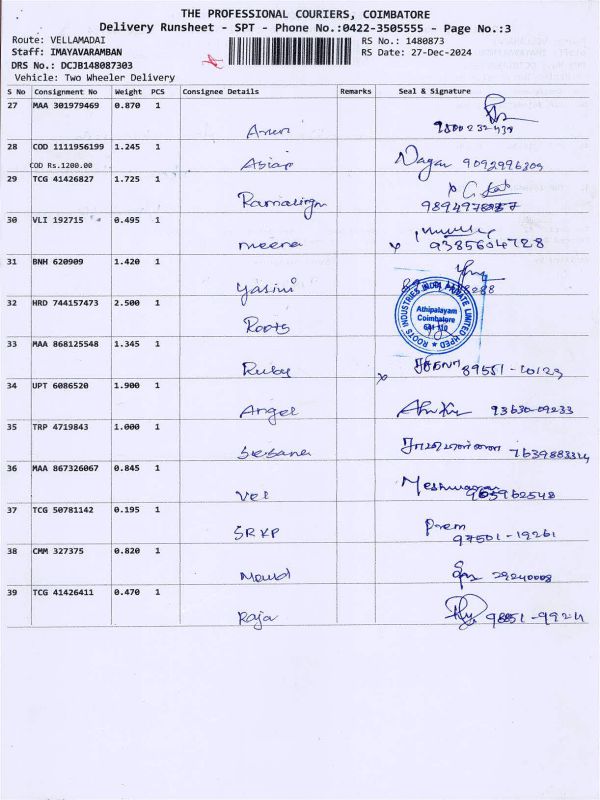 THE PROFESSIONAL COURIERS, COIMBATORE
Delivery Runsheet - SPT - Phone No.:0422-3505555 - Page No.:3
Route: VELLAMADAI
RS No.: 1480873
Staff: IMAYAVARAMBAN
RS Date: 27-Dec-2024
DRS No.: DCJB148087303
Vehicle: Two Wheeler Delivery
S No Consignment No Weight PCS Consignee Details Remarks Seal & Signature
27 MAA 301979469 0.870 1
28 COD 1111956199 1.245 1
COD Rs.1200.00
Nagar 9092996309
29 TCG 41426827 1.725 1
30 VLI 192715 0.495 1
meena 9385604728
31 BNH 620909 1.420 1
Yasini
32 HRD 744157473 2.500 1
Roots
ROOTS INDUSTRIES INDIA PRIVATE LIMITED HPED
Athipalayam
Coimbatore
641 110
33 MAA 868125548 1.345 1
Ruby 89551-10129
34 UPT 6086520 1.900 1
Angel 93630-09233
35 TRP 4719843 1.000 1
7639883324
36 MAA 867326067 0.845 1
Vel
37 TCG 50781142 0.195 1
SRKP Prem
97501-19261
38 CMM 327375 0.820 1
29240008
39 TCG 41426411 0.470 1
Raja